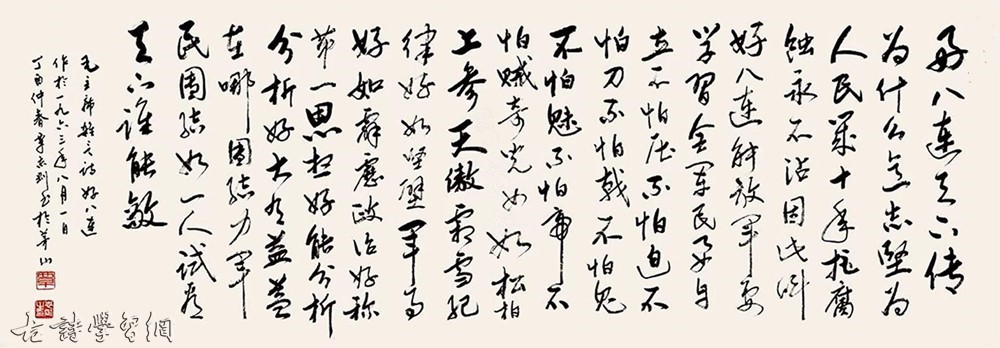 好八连天下传
为什么意志坚为
人民几十年拒腐
蚀永不沾因此叫
好八连解放军要
学習全军民要自
立不怕压不怕迫不
怕刀不怕戟不怕鬼
不怕魅不怕帝不
怕贼奇儿女如松柏
上参天傲霜雪纪
律好如坚壁军事
好如霹雳政治好称
第一思想好能分析
分析好大有益益
在哪团结力军
民团结如一人试看
天下谁能敌
毛主席杂言诗好八连
作於一九六三年八月一日
丁酉仲春章书於茅山
詩學習網